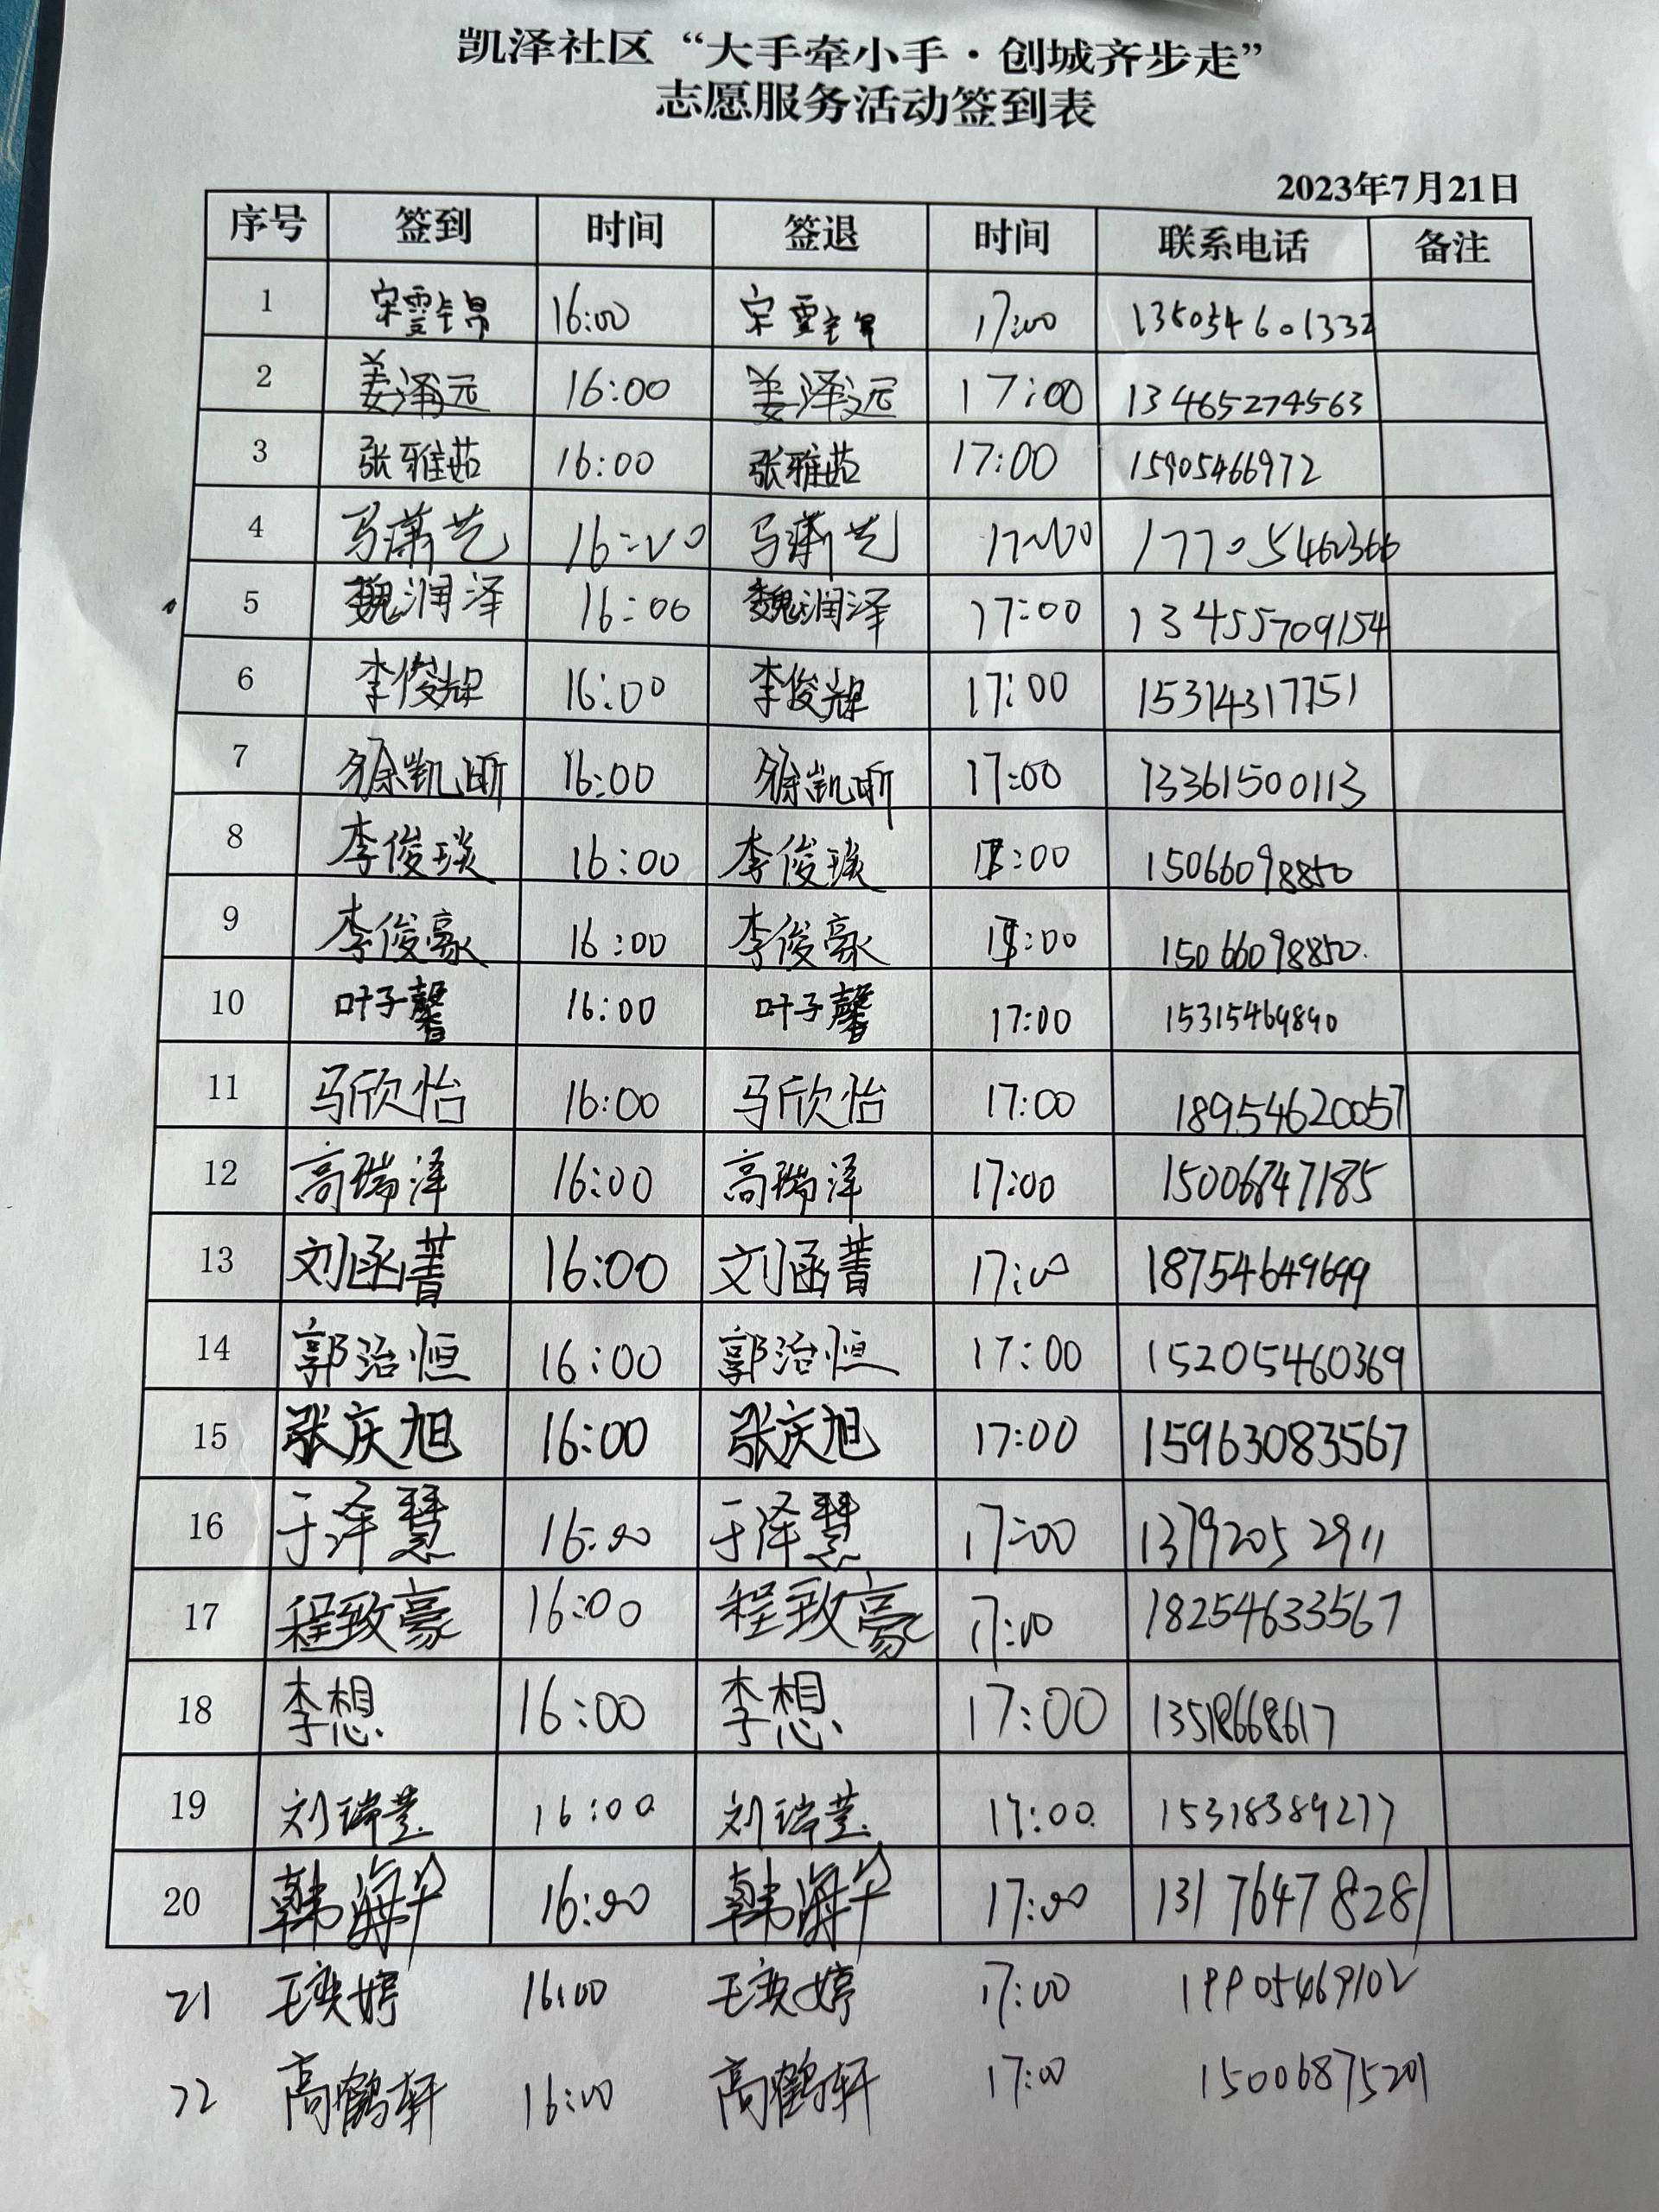 凯泽社区“大手牵小手·创城齐步走”
志愿服务活动签到表
2023年7月21日
序号 签到 时间 签退 时间 联系电话 备注
1 宋 16:00 宋 17:00
2 姜泽远 16:00 姜泽远 17:00 13465274563
3 张雅茹 16:00 张雅茹 17:00 15905466972
4 马潇艺 16:00 马潇艺 17:00 17705460366
5 魏润泽 16:00 魏润泽 17:00 13455709154
6 李俊焜 16:00 李俊焜 17:00 15314317751
7 徐凯昕 16:00 徐凯昕 17:00 13361500113
8 李俊琰 16:00 李俊琰 :00 15066098850
9 李俊豪 16:00 李俊豪 :00 15066098850
10 叶子馨 16:00 叶子馨 17:00 15315469890
11 马欣怡 16:00 马欣怡 17:00 18954620057
12 高瑞泽 16:00 高瑞泽 17:00 15006847185
13 刘函菁 16:00 刘涵菁 17:00 18754649699
14 郭治恒 16:00 郭治恒 17:00 15205460369
15 张庆旭 16:00 张庆旭 17:00 15963083567
16 于泽慧 16:00 于泽慧 17:00 13792052911
17 程致豪 16:00 程致豪 17:00 18254633567
18 李想 16:00 李想 17:00 13518668617
19 刘瑞莹 16:00 刘瑞莹 17:00 15318389277
20 韩海华 16:00 韩海华 17:00 13176478281
21 王奕婷 16:00 王奕婷 17:00 19905469102
22 高鹤轩 16:00 高鹤轩 17:00 15006875201